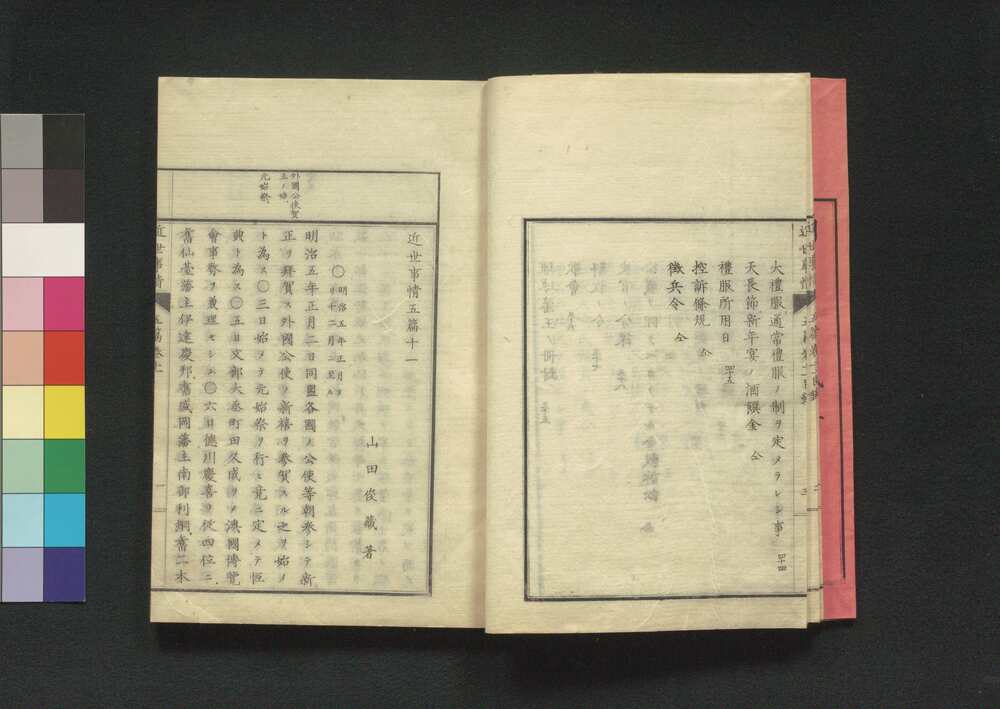 大禮服通常禮服ノ制ヲ定メラレシ事 四十四
天長節新年宴ノ酒饌金 仝
禮服所用日 四十五
控訴條規 仝
徴兵令 仝
近世事情五篇十一
〇明治五年正月ヨリ
仝十二月ニ至ル
山田俊藏著
明治五年正月二日同盟各國ノ公使等朝參シテ新
正ヲ拜賀ス外國公使ヲ新禧ヲ參賀スル之ヲ始メ
ト為ス〇三日始メテ元始祭ヲ行ヒ竟ニ定メテ恒
典ト為ス〇五日文部大丞町田久成ヲメ澳國博覽
會事務ヲ義理セシム〇六日德川慶喜ヲ從四位ニ
舊仙臺藩主伊達慶邦舊盛岡藩主南部利綱舊二本
外國公使賀
正ノ始
元始祭
近世事情
五篇卷十一
一